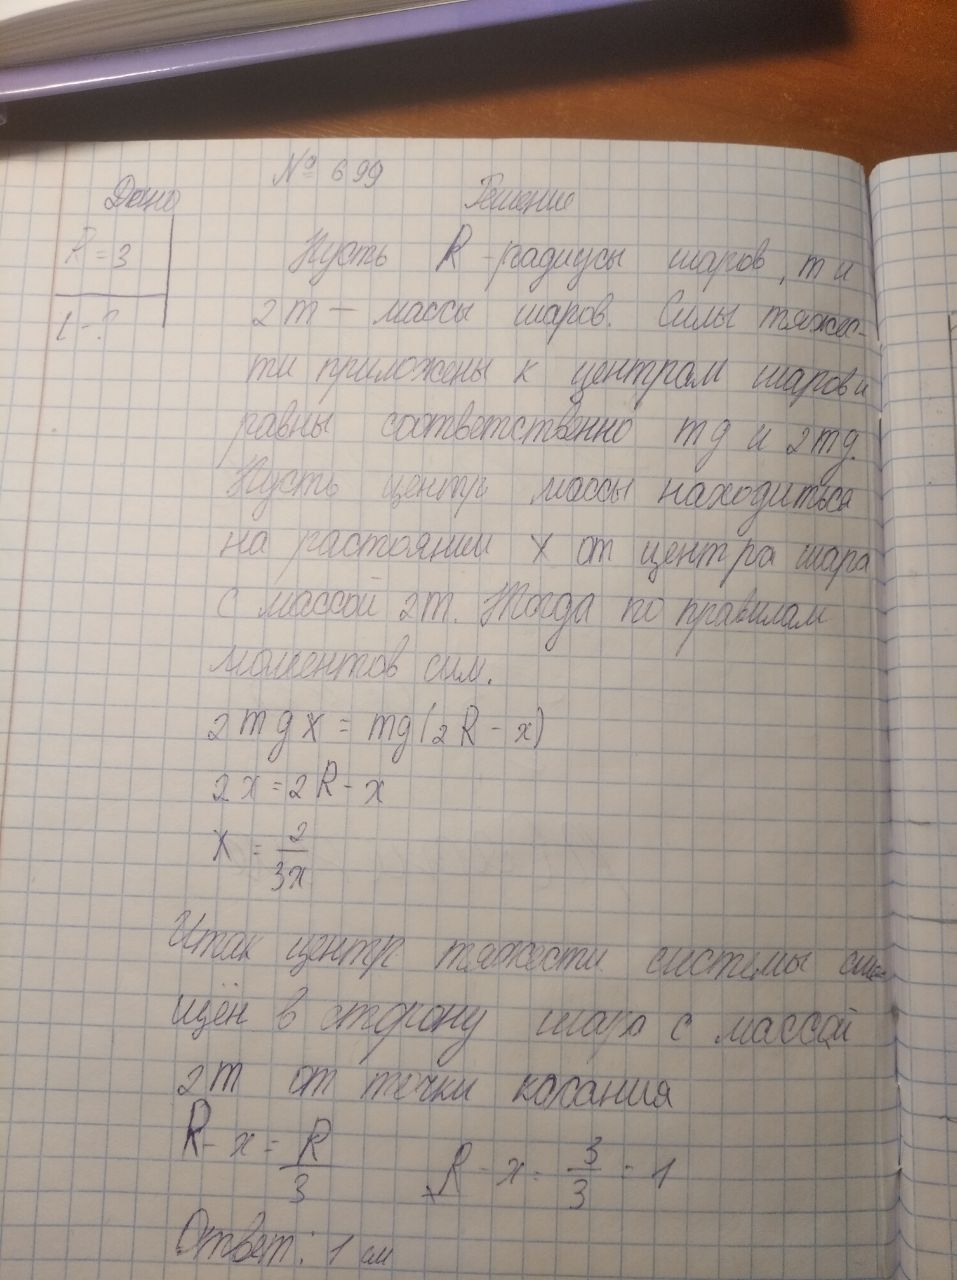 № 699
Дано Решение
R = 3
l - ?
Пусть R - радиусы шаров, m и
2m — массы шаров. Силы тяжес-
ти приложены к центрам шаров и
равны соответственно mg и 2mg.
Пусть центр массы находиться
на растоянии x от центра шара
с массой 2m. Тогда по правилам
моментов сил.
2mgx = mg(2R - x)
2x = 2R - x
x = 2/3x
Итак центр тяжести системы сме-
щён в сторону шара с массой
2m от точки касания
R - x = R/3 R - x = 3/3 = 1
Ответ: 1 см